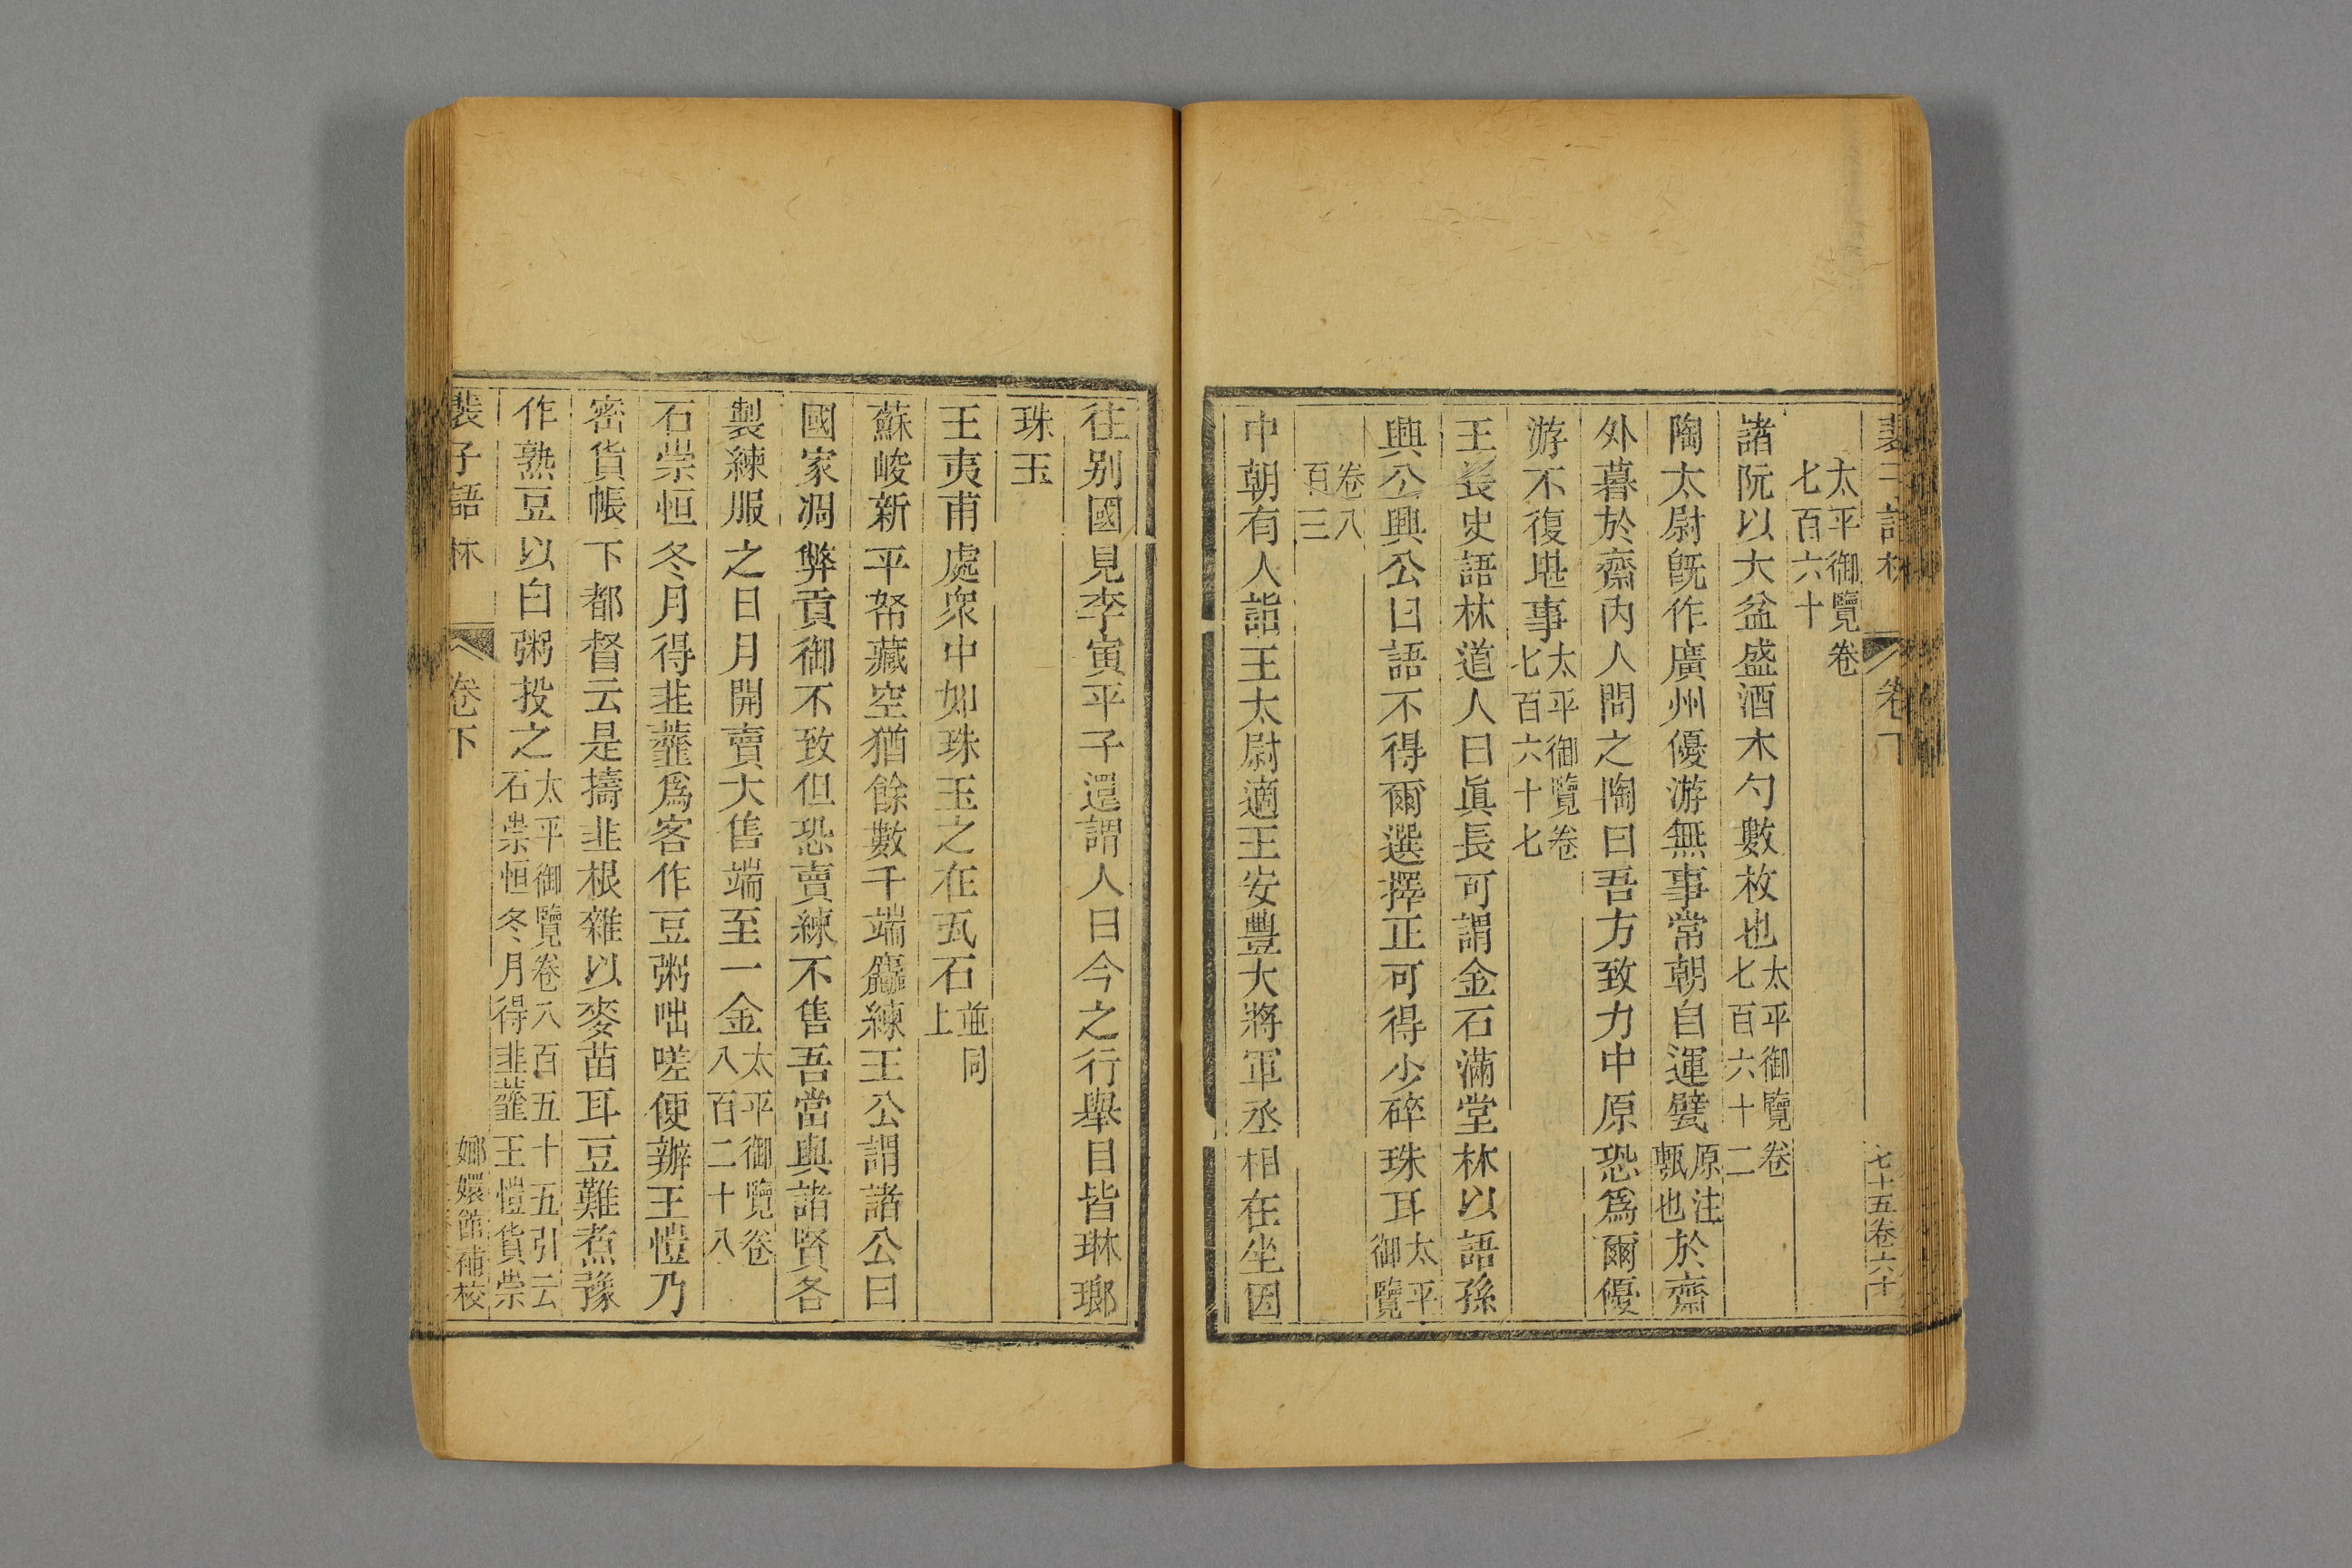 裴子語林 卷下 七十五卷六十
太平御覽卷七百六十
諸阮以大盆盛酒木勺數枚也太平御覽卷七百六十二
陶太尉旣作廣州優游無事常朝自運甓原注甎也於齋
外暮於齋內人問之陶曰吾方致力中原恐爲爾優
游不復堪事太平御覽卷七百六十七
王長史語林道人曰眞長可謂金石滿堂林以語孫
興公興公曰語不得爾選擇正可得少碎珠耳太平御覽
卷八百三
中朝有人詣王太尉適王安豐大將軍丞相在坐因
往别國見李寅平子還謂人曰今之行舉目皆琳瑯
珠玉
王夷甫處衆中如珠玉之在瓦石並同上
蘇峻新平帑藏空猶餘數千端麤練王公謂諸公曰
國家凋弊貢御不致但恐賣練不售吾當與諸賢各
製練服之日月開賣大售端至一金太平御覽卷八百二十八
石崇恒冬月得韭虀爲客作豆粥咄嗟便辦王愷乃
密貨帳下都督云是擣韭根雜以麥苗耳豆難煮豫
作熟豆以白粥投之太平御覽卷八百五十五引云石崇恒冬月得韭虀王愷貨崇
裴子語林 卷下 嫏嬛館補校